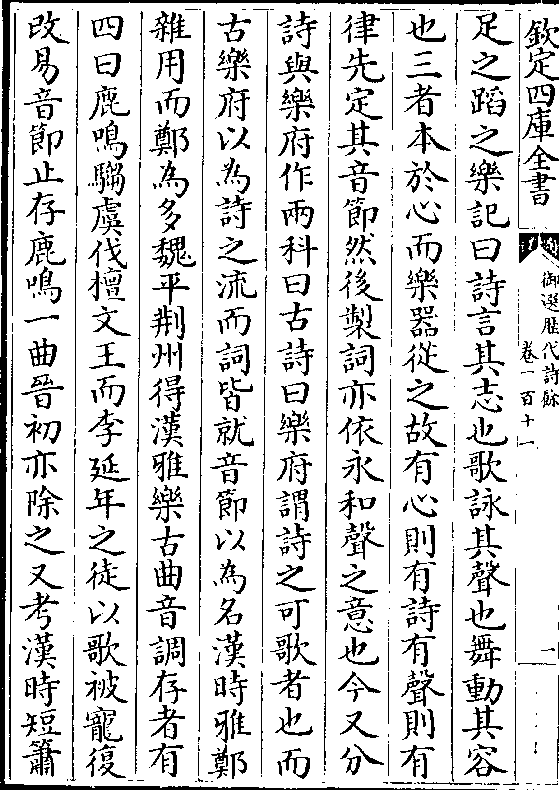 欽定四庫全書
御選歴代詩餘
卷一百十一
一
足之蹈之樂記曰詩言其志也歌詠其聲也舞動其容
也三者本於心而樂器從之故有心則有詩有聲則有
律先定其音節然後製詞亦依永和聲之意也今又分
詩與樂府作兩科曰古詩曰樂府謂詩之可歌者也而
古樂府以為詩之流而詞皆就音節以為名漢時雅鄭
雜用而鄭為多魏平荆州得漢雅樂古曲音調存者有
四曰鹿鳴騶虞伐檀文王而李延年之徒以歌被寵復
改易音節止存鹿鳴一曲晉初亦除之又考漢時短簫